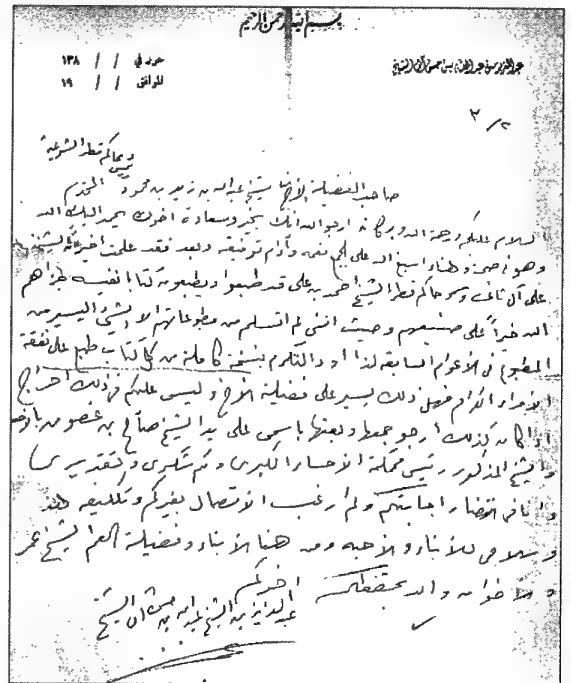 بسم الله الرحمن الرحيم
عبد العزيز بن عبد الله بن حسن آل الشيخ
حرر في / / ١٣٨
الموافق / / ١٩
٢/٣
رئيس محاكم قطر الشرعية
صاحب الفضيلة الأخ الشيخ عبد الله بن زيد بن محمود المحترم
السلام عليكم ورحمة الله وبركاته ارجو الله انك بخير وسعادة اخوك يحمد اليك الله
وهو في صحة وهناء اسبغ الله على الجميع نعمه وأدام توفيقه وبعد فقد علمت اخيرا الشيخ
علي آل ثاني وسمو حاكم قطر الشيخ احمد بن علي قد طبعوا ويطبعون كتبا نفيسه جزاهم
الله خيرا على صنيعهم وحيث انني لم اتسلم من مطبوعاتهم الا الشيء اليسير من
المطبوع في الأعوام السابقة لذا اود التكرم بنسخة كاملة من كل كتاب طبع على نفقة
الأمراء الكرام فهل ذلك يسير على فضيلة الأخ وليس عليكم في ذلك احراج
اذا كان كذلك ارجو جمعها وبعثها باسمي على يد الشيخ صالح بن غصون
والشيخ المذكور رئيس محكمة الأحساء الكبرى ولكم شكري وتقديري
وانا في انتظار اجابتكم ولم ارغب الاتصال بغيركم وتكليفه
وسلامي للأبناء والأحبه ومن هنا الأبناء وفضيلة العم الشيخ عمر
والاخوان والله يحفظكم
اخوكم
عبد العزيز بن الشيخ عبد الله بن حسن آل الشيخ